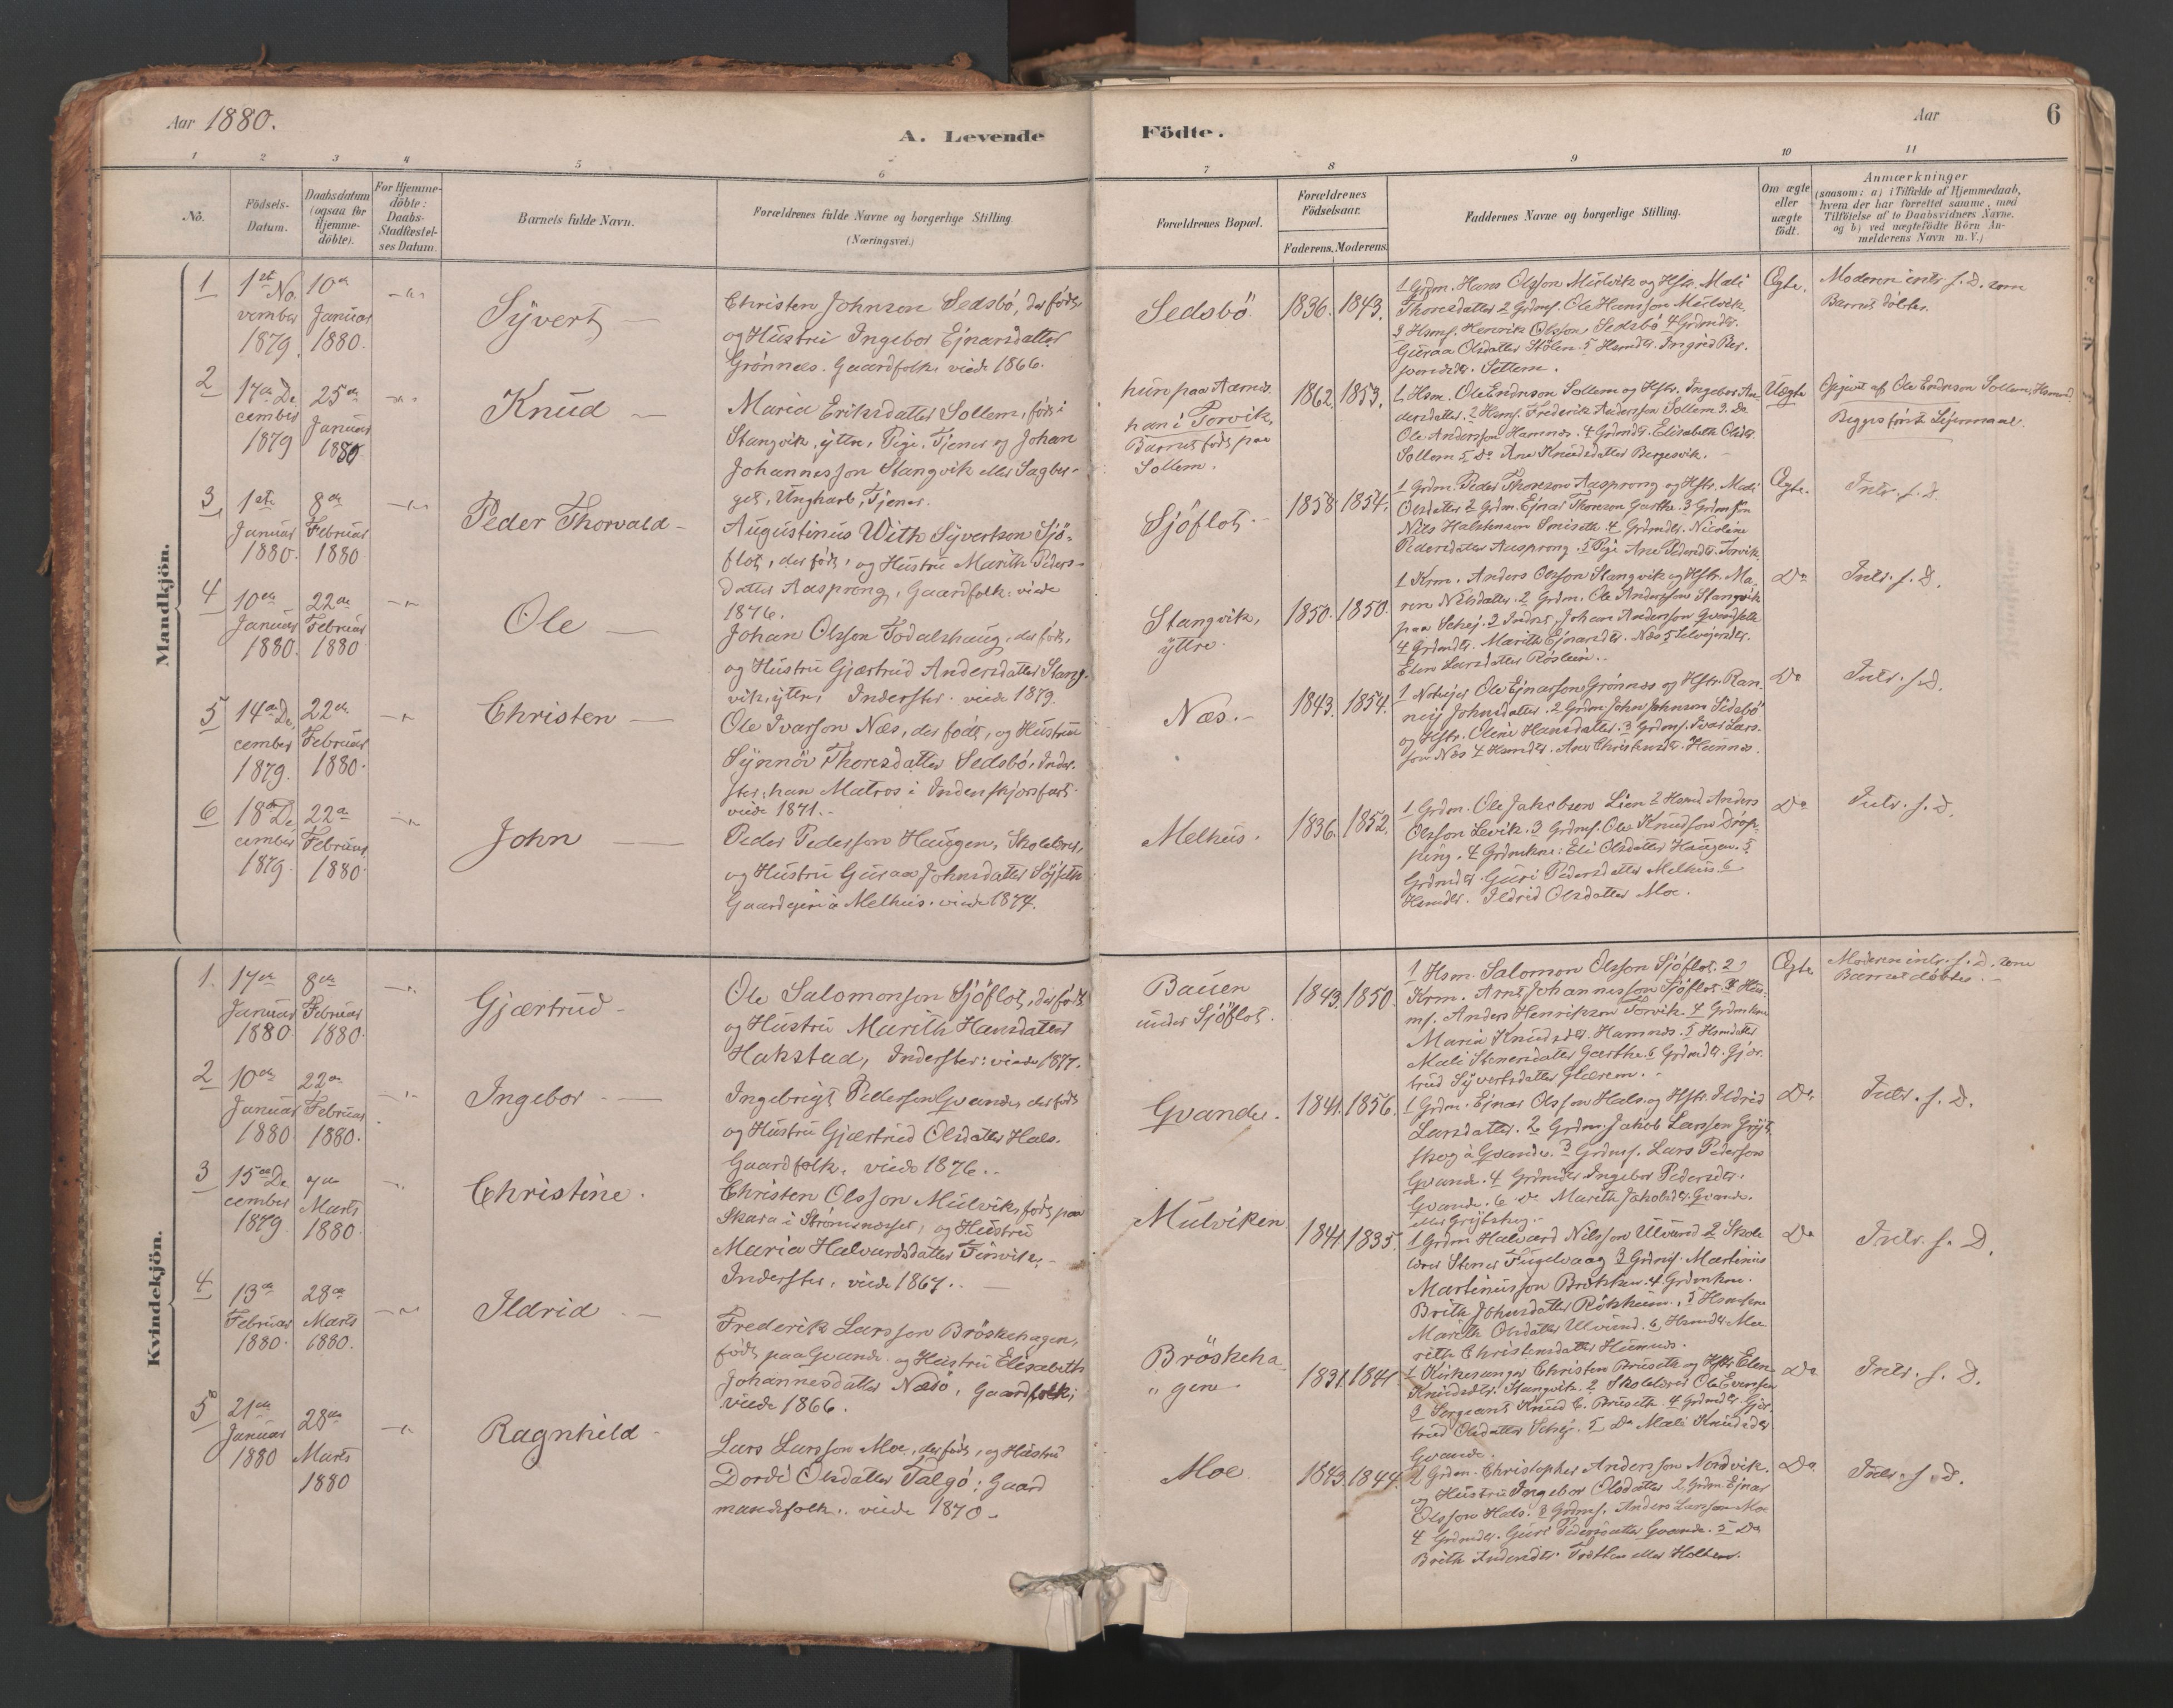 Aar 1880.
A. Levende Födte.
Aar
6
1 2 3 4 5 6 7 8 9 10 11
Nò.
Födsels-Datum.
Daabsdatum (ogsaa for Hjemme-döbte).
For Hjemme-döbte: Daabs-Stadfæstel-ses Datum.
Barnets fulde Navn.
Forældrenes fulde Navne og borgerlige Stilling. (Næringsvei.)
Forældrenes Bopæl.
Forældrenes Födselsaar.
Faderens. Moderens.
Faddernes Navne og borgerlige Stilling.
Om ægte eller uægte födt.
Anmærkninger
(saasom: a) i Tilfælde af Hjemmedaab, hvem der har forrettet samme, med Tilföielse af to Daabsvidners Navne, og b) ved uægtefödte Börn Anmelderens Navn m. V.)
Mandkjön.
1
1ste November 1879.
10de Januar 1880.
Syvert
Christen Johnson Sedsbö, der födt,
og Hustru Ingebor Ejnarsdatter
Grönnes. Gaardfolk. viede 1866.
Sedsbö.
1836. 1843.
1 Grdm. Hans Olsson Mulvik og Hstr. Mali
Thoresdatter 2 Grdms. Ole Hansson Mulvik,
3 Hsms. Henrik Olsson Sedsbö 4 Grdmdtr.
Guraa Olsdatter Stölen. 5 Hsmdtr. Ingrid
Settem.
Ægte.
Moderen intr. s. D. som
Barnet döbtes.
2
17de December 1879
25de Januar 1880
Knud
Maria Eriksdatter Sollem, födt i
Stangvik, ytre, Pige, Tjener og Johan
Johannesson Stangvik eller Sagber-
get, Ungkarl, Tjener.
hun paa Aarnes
han i Torvik,
Barnet födt paa
Sollem.
1862. 1853.
1 Hsm. Ole Endreson Sollem og Hstr. Ingebor An-
dersdatter. 2 Hsms. Frederik Andersson Sollem 3. Do
Ole Andersson Hamnes. 4 Grdmdtr. Elisabeth Olsdtr.
Sollem 5 Do Ane Knudsdatter Bergesvik.
Uægte
Opgivet af Ole Endreson Sollem, Hsmand.
Begges förste Lejermaal.
3
1ste Januar 1880.
8de Februar 1880
Peder Thorvald
Augustinus With Syvertson Sjö-
flot, der födt, og Hustru Marith Peders-
datter Aasprong, Gaardfolk. viede
1876.
Sjöflot.
1858 1854.
1 Grdm. Peder Thoreson Aasprong og Hstr. Mali
Olsdatter 2 Grdm. Ejnar Thoreson Garthe. 3 Grdmsön
Nils Halstenson Smiseth. 4 Grdmdtr. Nicoline
Pedersdatter Aasprong. 5 Pige Ane Pedersdtr. Torvik
Ægte.
Intr. s. D.
4
10de Januar 1880.
22de Februar 1880
Ole
Johan Olsson Todalshaug, der födt,
og Hustru Gjærtrud Andersdatter Stang-
vik, ytre, Inderster. viede 1879.
Stangvik,
ytre.
1850. 1850.
1 Krm. Anders Olsson Stangvik og Hstr. Ma-
ren Nilsdatter. 2 Grdm. Ole Andersson Stangvik
paa Schej. 3 Johan Andersson
4 Grdmdtr. Marith Ejnarsdtr. Næs 5 Selvejerdtr.
Elen Larsdatter
Do
Intr. s. D.
5
14de December 1879.
22de Februar 1880.
Christen
Ole Ivarson Næs, der födt, og Hustru
Synnöv Thoresdatter Sedsbö, Inder-
ster: han Matros i Indenskjærsfart
viede 1871.
Næs.
1843. 1854.
1 Ole Ejnarson Grönnes og Hstr. Ran-
nej Johnsdatter. 2 Grdm. John Johnson Sedsbö
og Hstr. Oline Hansdatter. 3 Grdms. Ivar Lars-
son Næs 4 Hsmdtr. Ane Christensdtr.
Do
Intr. s. D.
6
18de December 1879.
22de Februar 1880
John
Peder Pederson Haugen, Skolelærer,
og Hustru Guraa Johnsdatter
Gaardejeri å Melhus. viede 1874.
Melhus.
1836. 1852.
1 Grdm. Ole Jakobson Lien 2 Hsmd Anders
Olsson Levik. 3 Grdms. Ole Knudson Dröp-
ping. 4 Grdmkone: Eli Olsdatter Haugen. 5
Grdmdtr. Guri Pedersdatter Melhus. 6
Hsmdtr. Ildrid Olsdatter Moe.
Do
Intr. s. D.
Kvindekjön.
1.
17de Januar 1880
8de Februar 1880.
Gjærtrud
Ole Salomonson Sjöflot, der födt
og Hustru Marith Hansdatter
Hakstad, Inderster: viede 1877.
Bauen
under Sjöflot.
1843. 1850.
1 Hsm. Salomon Olsson Sjöflot. 2
Krm. Arnt Johannesson Sjöflot. 3 Hus-
ms. Anders Henrikson Torvik. 4 Grdmkone
Maria Knudsdtr. Hamnes. 5 Hsmdatter
Mali Stenersdatter Garthe. 6 Grdmdtr. Gjær-
trud Syvertsdatter Glærem.
Ægte
Moderen intr. s. D. som
Barnet döbtes.
2
10de Januar 1880
22de Februar 1880.
Ingebor
Ingebrigt Pederson Qvande, der födt
og Hustru Gjærtrud Olsdatter Hals.
Gaardfolk. viede 1876.
Qvande.
1841. 1856.
1 Grdm. Ejnar Olsson Hals og Hstr. Ildrid
Larsdatter. 2 Grdm. Jakob Larsson Grijt-
skog å Qvande. 3 Grdms. Lars Pederson
Qvande. 4 Grdmdtr Ingebor Pedersdtr.
Qvande. 6 Do Marith Jakobsdtr. Qvande.
eller Grijtskog.
Do
Intr. s. D.
3
15de December 1879.
7de Marts 1880
Christine.
Christen Olsson Mulvik, födt paa
Skara i Strömsneset, og Hustru
Maria Halvardsdatter
Inderster, viede 1867.
Mulviken
1841. 1835.
1 Grdm Halvard Nilsson Ulvund 2 Skole-
lærer Stener Fugelvaag 3 Grdms. Martinus
Martinusson Brækken. 4 Grdmkone.
Brith Johnsdatter 5 Hsmkone
Marith Olsdatter Ulvund. 6. Hsmdtr Ma-
rith Christensdatter
Do
Intr. s. D.
4
13de Februar 1880.
28de Marts 1880.
Ildrid
Frederik Larsson Bröskehagen,
födt paa Qvande og Hustru Elisabeth
Johannesdatter Nædö, Gaardfolk;
viede 1866.
Bröskeha
" gen
1831. 1841.
1 Kirkesanger Christen Bruseth og Hstr. Elen
Knudsdtr. Stangvik. 2 Skolelærer Ole Evensen
3 Sergeant Knud C. Bruseth. 4 Grdmdtr. Gjær-
trud Olsdatter Schej. 5 Do Mali Knudsdtr
Qvande.
Do
Intr. s. D.
5
21de Januar 1880
28de Marts 1880
Ragnhild
Lars Larsson Moe, der födt, og Hustru
Dordi Olsdatter Talgö: Gaard
mandsfolk. viede 1870.
Moe
1843. 1844.
1 Grdm. Christopher Andersson Nordvik.
og Hustru Ingebor Olsdatter 2 Grdm. Ejnar
Olsson Hals. 3 Grdms. Anders Larsson Moe
4 Grdmdtr. Guri Pedersdatter Qvande. 5 Do
Brith Andersdtr. eller Holten.
Do
Intr. s. D.